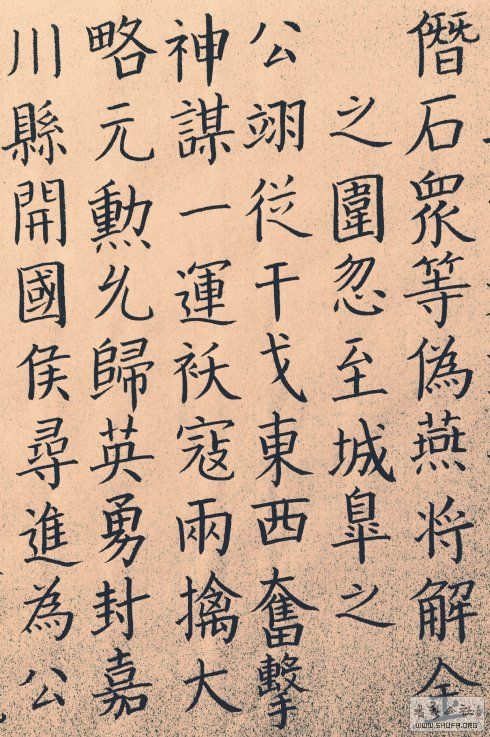 僭石眾等偽燕将解全
之圍忽至城臯之
公翊従干戈東西奮擊
神謀一運祅寇兩擒大
略元勳允歸英勇封嘉
川縣開國侯尋進為公
WWW.SHUFA.ORG